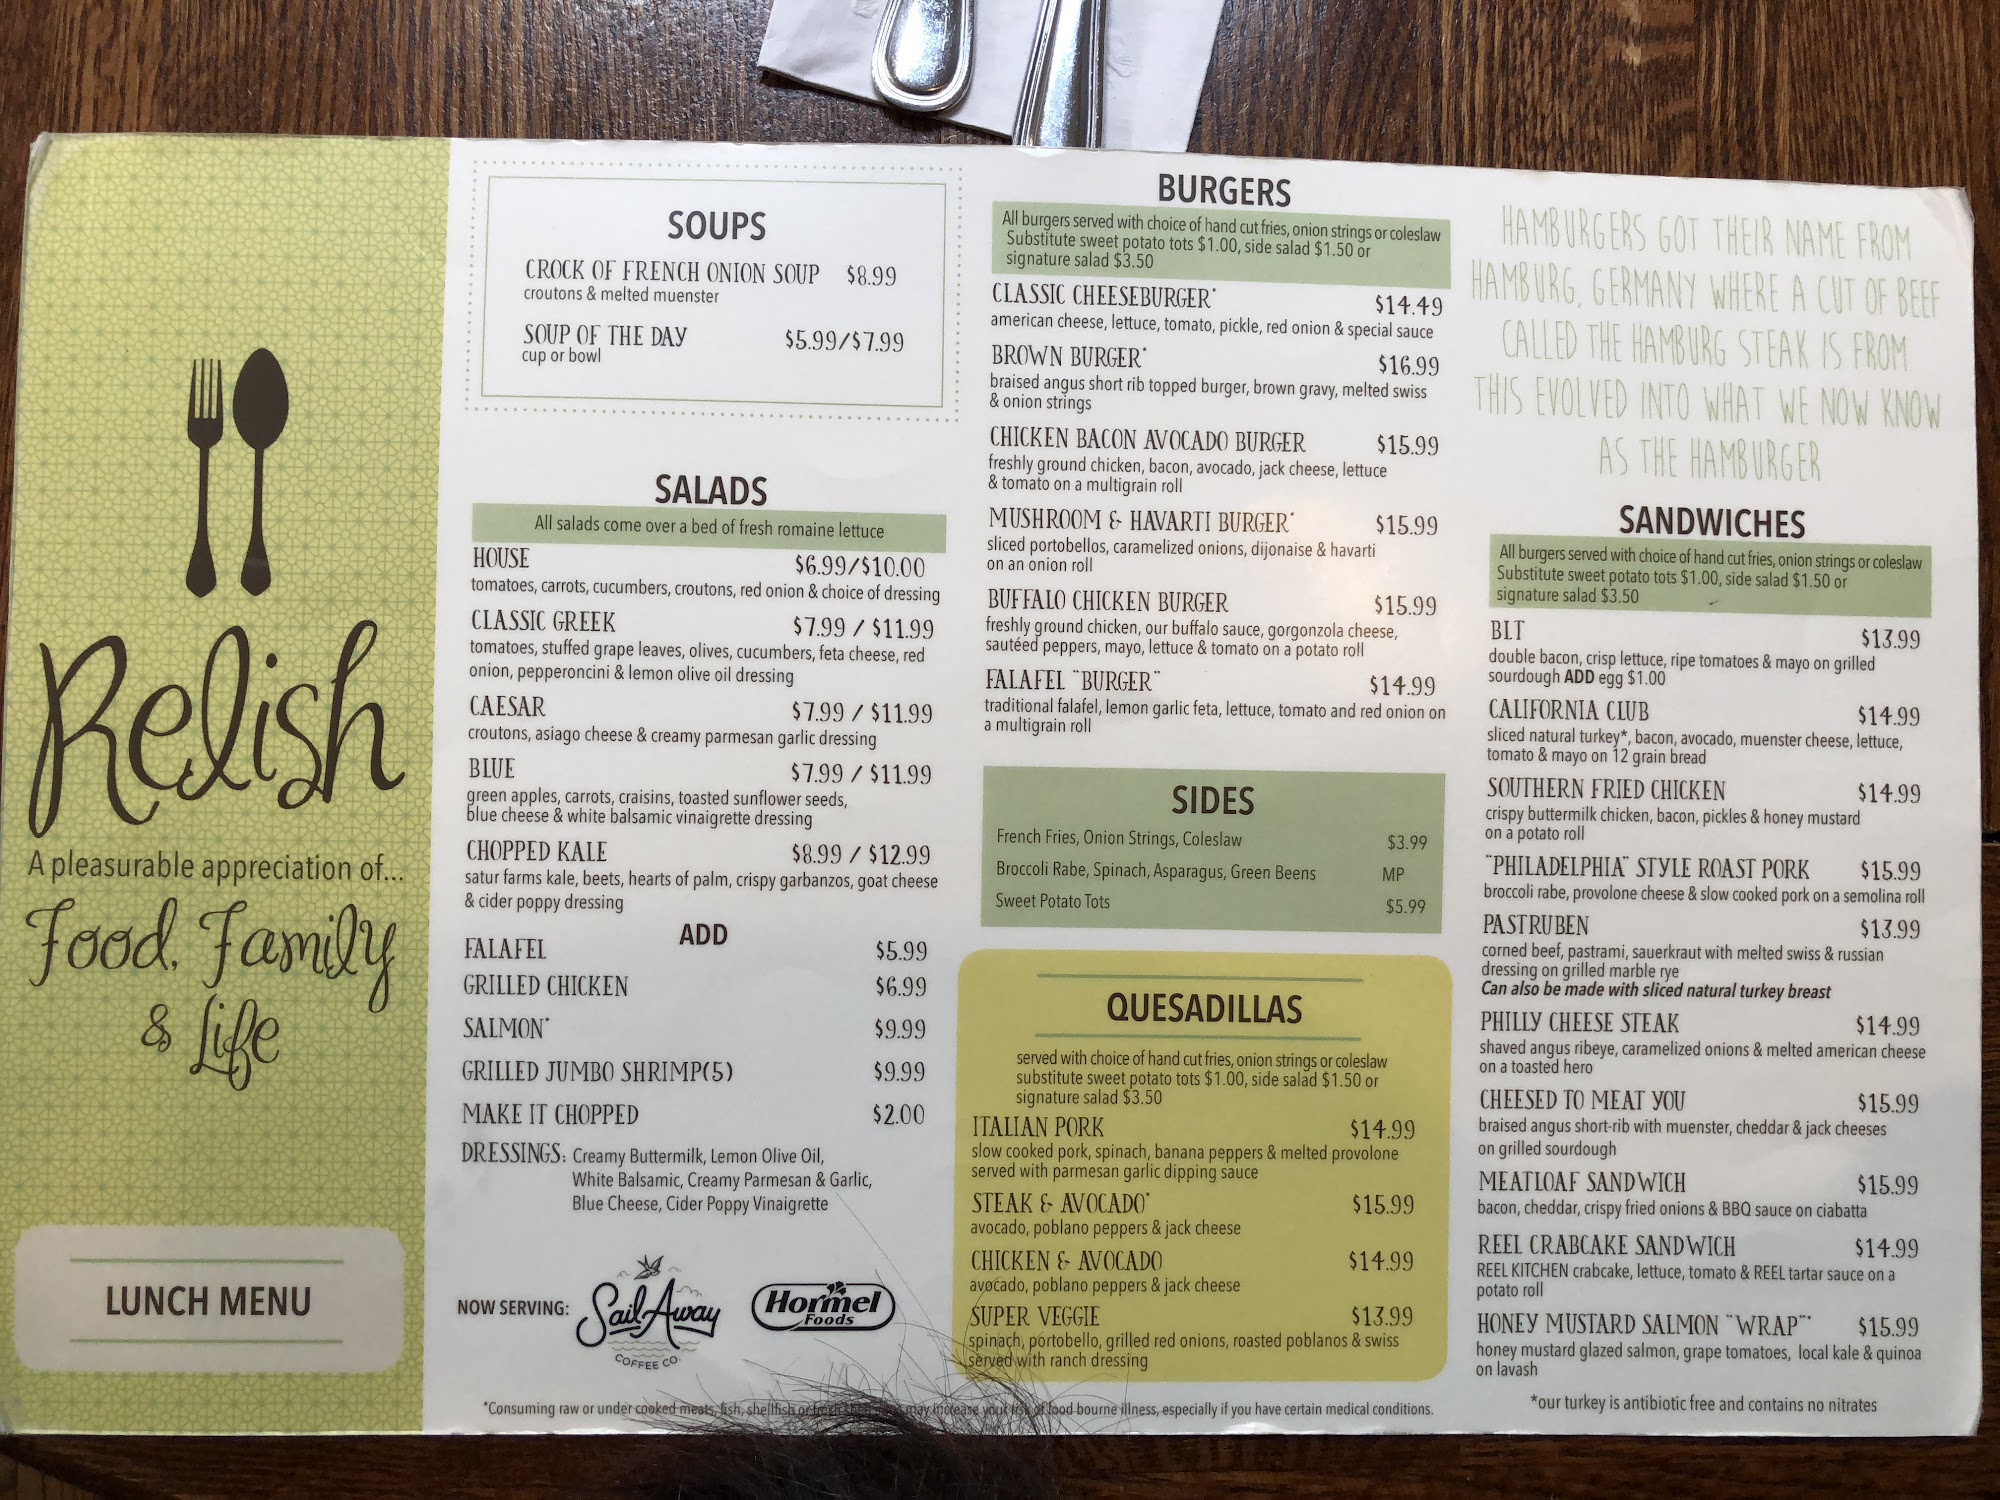 Relish
A pleasurable appreciation of...
Food, Family
& Life
LUNCH MENU
SOUPS
CROCK OF FRENCH ONION SOUP $8.99
croutons & melted muenster
SOUP OF THE DAY $5.99/$7.99
cup or bowl
SALADS
All salads come over a bed of fresh romaine lettuce
HOUSE $6.99/$10.00
tomatoes, carrots, cucumbers, croutons, red onion & choice of dressing
CLASSIC GREEK $7.99 / $11.99
tomatoes, stuffed grape leaves, olives, cucumbers, feta cheese, red
onion, pepperoncini & lemon olive oil dressing
CAESAR $7.99 / $11.99
croutons, asiago cheese & creamy parmesan garlic dressing
BLUE $7.99 / $11.99
green apples, carrots, craisins, toasted sunflower seeds,
blue cheese & white balsamic vinaigrette dressing
CHOPPED KALE $8.99 / $12.99
satur farms kale, beets, hearts of palm, crispy garbanzos, goat cheese
& cider poppy dressing
ADD
FALAFEL $5.99
GRILLED CHICKEN $6.99
SALMON* $9.99
GRILLED JUMBO SHRIMP(5) $9.99
MAKE IT CHOPPED $2.00
DRESSINGS: Creamy Buttermilk, Lemon Olive Oil,
White Balsamic, Creamy Parmesan & Garlic,
Blue Cheese, Cider Poppy Vinaigrette
NOW SERVING:
Sail Away
COFFEE CO.
Hormel
Foods
BURGERS
All burgers served with choice of hand cut fries, onion strings or coleslaw
Substitute sweet potato tots $1.00, side salad $1.50 or
signature salad $3.50
CLASSIC CHEESEBURGER* $14.49
american cheese, lettuce, tomato, pickle, red onion & special sauce
BROWN BURGER* $16.99
braised angus short rib topped burger, brown gravy, melted swiss
& onion strings
CHICKEN BACON AVOCADO BURGER $15.99
freshly ground chicken, bacon, avocado, jack cheese, lettuce
& tomato on a multigrain roll
MUSHROOM & HAVARTI BURGER* $15.99
sliced portobellos, caramelized onions, dijonaise & havarti
on an onion roll
BUFFALO CHICKEN BURGER $15.99
freshly ground chicken, our buffalo sauce, gorgonzola cheese,
sautéed peppers, mayo, lettuce & tomato on a potato roll
FALAFEL "BURGER" $14.99
traditional falafel, lemon garlic feta, lettuce, tomato and red onion on
a multigrain roll
SIDES
French Fries, Onion Strings, Coleslaw $3.99
Broccoli Rabe, Spinach, Asparagus, Green Beens MP
Sweet Potato Tots $5.99
QUESADILLAS
served with choice of hand cut fries, onion strings or coleslaw
substitute sweet potato tots $1.00, side salad $1.50 or
signature salad $3.50
ITALIAN PORK $14.99
slow cooked pork, spinach, banana peppers & melted provolone
served with parmesan garlic dipping sauce
STEAK & AVOCADO* $15.99
avocado, poblano peppers & jack cheese
CHICKEN & AVOCADO $14.99
avocado, poblano peppers & jack cheese
SUPER VEGGIE $13.99
spinach, portobello, grilled red onions, roasted poblanos & swiss
served with ranch dressing
HAMBURGERS GOT THEIR NAME FROM
HAMBURG, GERMANY WHERE A CUT OF BEEF
CALLED THE HAMBURG STEAK IS FROM.
THIS EVOLVED INTO WHAT WE NOW KNOW
AS THE HAMBURGER
SANDWICHES
All burgers served with choice of hand cut fries, onion strings or coleslaw
Substitute sweet potato tots $1.00, side salad $1.50 or
signature salad $3.50
BLT $13.99
double bacon, crisp lettuce, ripe tomatoes & mayo on grilled
sourdough ADD egg $1.00
CALIFORNIA CLUB $14.99
sliced natural turkey*, bacon, avocado, muenster cheese, lettuce,
tomato & mayo on 12 grain bread
SOUTHERN FRIED CHICKEN $14.99
crispy buttermilk chicken, bacon, pickles & honey mustard
on a potato roll
"PHILADELPHIA" STYLE ROAST PORK $15.99
broccoli rabe, provolone cheese & slow cooked pork on a semolina roll
PASTRUBEN $13.99
corned beef, pastrami, sauerkraut with melted swiss & russian
dressing on grilled marble rye
Can also be made with sliced natural turkey breast
PHILLY CHEESE STEAK $14.99
shaved angus ribeye, caramelized onions & melted american cheese
on a toasted hero
CHEESED TO MEAT YOU $15.99
braised angus short-rib with muenster, cheddar & jack cheeses
on grilled sourdough
MEATLOAF SANDWICH $15.99
bacon, cheddar, crispy fried onions & BBQ sauce on ciabatta
REEL CRABCAKE SANDWICH $14.99
REEL KITCHEN crabcake, lettuce, tomato & REEL tartar sauce on a
potato roll
HONEY MUSTARD SALMON "WRAP"* $15.99
honey mustard glazed salmon, grape tomatoes, local kale & quinoa
on lavash
*our turkey is antibiotic free and contains no nitrates
*Consuming raw or under cooked meats, fish, shellfish or fresh may increase your risk of food bourne illness, especially if you have certain medical conditions.